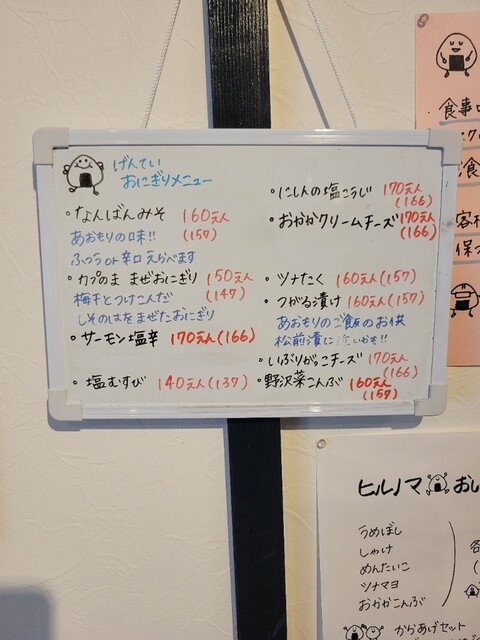 げんてい
おにぎりメニュー
・なんばんみそ 160えん
(157)
あおもりの味!!
ふつうor辛口えらべます
・カプのま まぜおにぎり 150えん
(147)
梅干とつけこんだ
しそのはをまぜたおにぎり
・サーモン塩辛 170えん(166)
・塩むすび 140えん(137)
・にしんの塩こうじ 170えん
(166)
・おかかクリームチーズ 170えん
(166)
・ツナたく 160えん(157)
・つがる漬け 160えん(157)
あおもりのご飯のお供
松前漬に いかも!!
・いぶりがっこチーズ 170えん
(166)
・野沢菜こんぶ 160えん
(157)
食事
食
客様
保
ヒルノマ おし
うめぼし
しゃけ
めんたいこ
ツナマヨ
おかかこんぶ
各
からあげセット